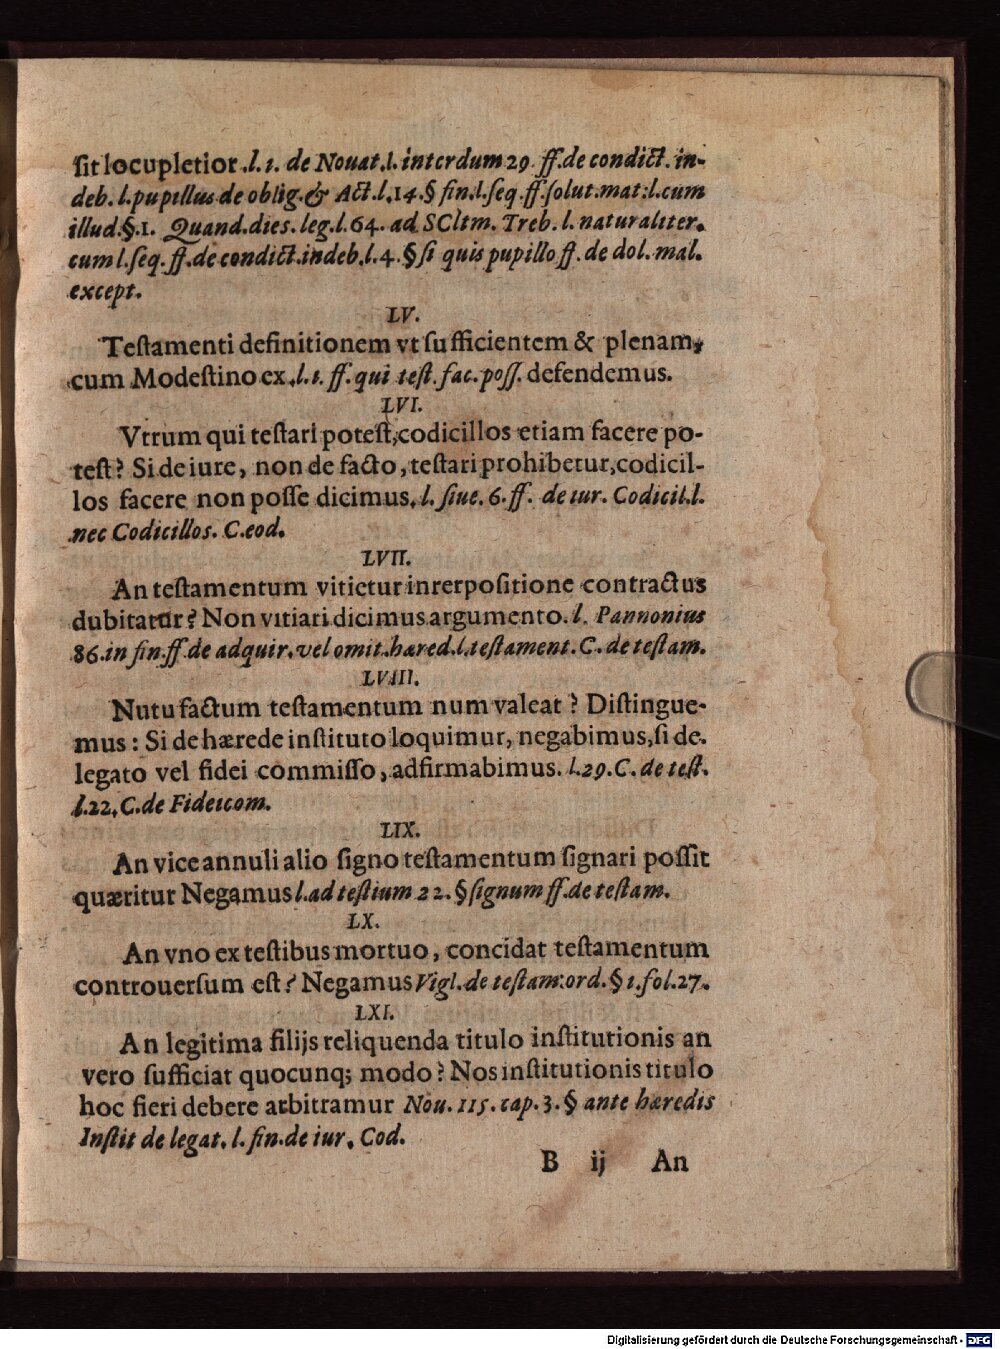 ſit locupletior.l.1. de Nouat.l.interdum 29. ff.de condict. in-
deb. l.pupillus de oblig.& Act.l.14.§ fin.l.ſeq.ff.ſolut.mat:l.cum
illud.§.1. Quand.dies.leg.l.64. ad SCltm. Treb.l.naturaliter.
cum l.ſeq.ff.de condict.indeb.l.4.§ ſi quis pupillo ff. de dol. mal.
except.
LV.
Teſtamenti definitionem vt ſufficientem & plenam,
cum Modeſtino ex.l.1. ff. qui teſt. fac.poſſ. defendemus.
LVI.
Vtrum qui teſtari poteſt,codicillos etiam facere po-
teſt? Si de iure, non de facto, teſtari prohibetur,codicil-
los facere non poſſe dicimus.l. ſiue. 6. ff. de iur. Codicil.l.
nec Codicillos. C.eod.
LVII.
An teſtamentum vitietur inrerpoſitione contractus
dubitatur? Non vitiari dicimus argumento. l. Pannonius
86.in fin.ff.de adquir.vel omit.hæred.l.teſtament.C.de teſtam.
LVIII.
Nutu factum teſtamentum num valeat? Diſtingue-
mus: Si de hærede inſtituto loquimur, negabimus,ſi de.
legato vel fidei commiſſo, adfirmabimus. l.29.C.de teſt.
l.22.C.de Fideicom.
LIX.
An vice annuli alio ſigno teſtamentum ſignari poſſit
quæritur Negamus l.ad teſtium 22.§ ſignum ff.de teſtam.
LX.
An vno ex teſtibus mortuo, concidat teſtamentum
controuerſum eſt? Negamus Vigl.de teſtam:ord.§ 1.fol.27.
LXI.
An legitima filijs reliquenda titulo inſtitutionis an
vero ſufficiat quocunq; modo? Nos inſtitutionis titulo
hoc fieri debere arbitramur Nou. 115. cap. 3. § ante hæredis
Inſtit de legat. l. fin.de iur. Cod.
B ij An
Digitalisierung gefördert durch die Deutsche Forschungsgemeinschaft - DFG